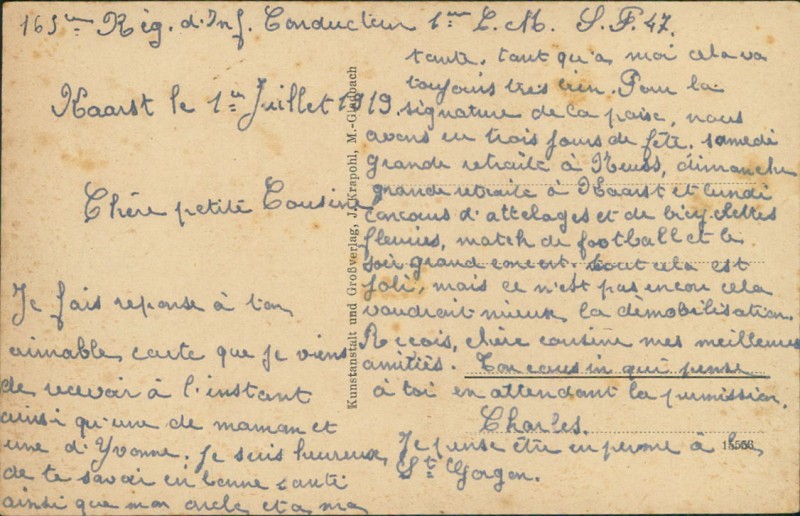 163ème Rég. d'Inf. Conducteur 1ère C. M. S. P. 47.
Kaarst le 1er Juillet 1919.
Chère petite Cousine
Je fais reponse à ton
aimable carte que je viens
de recevoir à l'instant
ainsi qu'une de maman et
une d'Yvonne. Je suis heureux
de te savoir en bonne santé
ainsi que mon oncle et ma
tante. tant qu'a moi cela va
toujours très bien. Pour la
signature de la paise, nous
avons eu trois jours de fête. samedi
grande retraite à Neuss, dimanche
grande retraite à Kaarst et lundi
concours d'attelages et de bicyclettes
fleuries, match de football et le
soir grand concert. tout cela est
joli, mais ce n'est pas encore cela
vaudrait mieux la démobilisation.
Recois, chère cousine mes meilleures
amitiés. Ton cousin qui pense
à toi en attendant la permission.
Charles.
Je pense être en perme à la
St Gorgon.
Kunstanstalt und Großverlag, J. Krapohl, M.-Gladbach